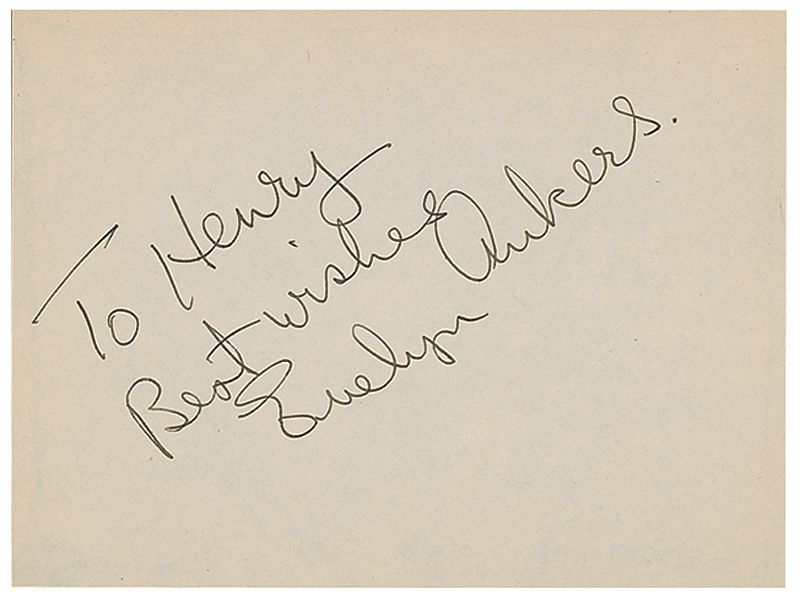 To Henry
Best wishes
Evelyn Ankers.